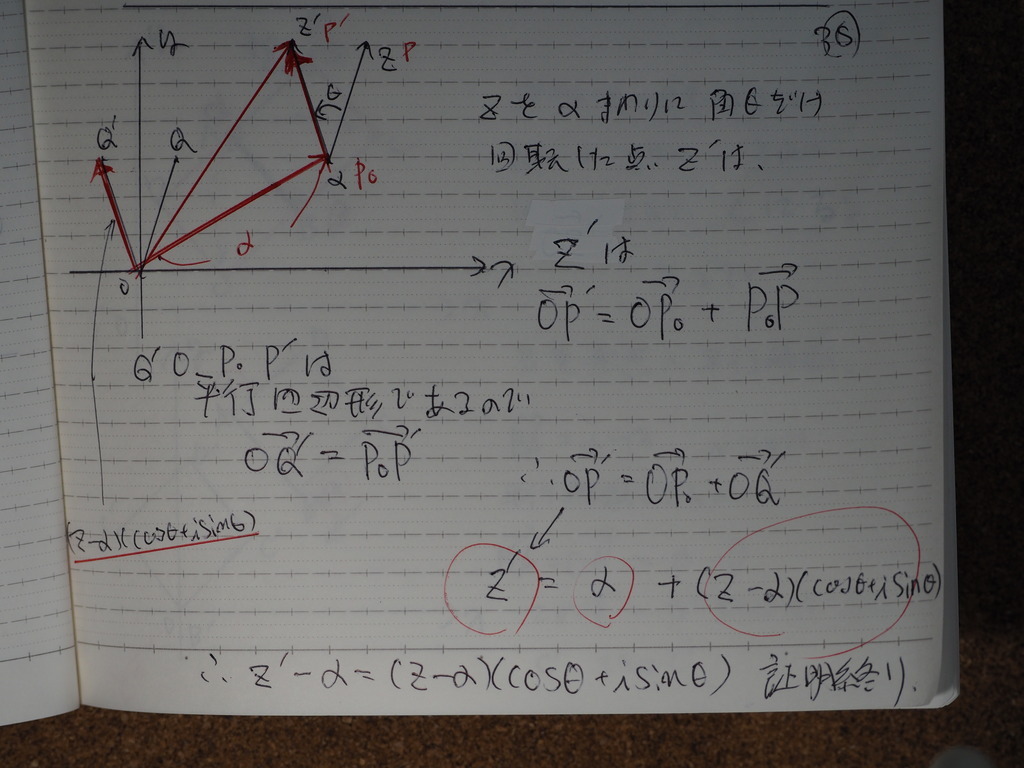 36
y
Z' P'
Z P
θ
Q'
Q
α P₀
α
O
x
Zをαまわりに角θだけ
回転した点 Z'は、
Z'は
OP' = OP₀ + P₀P
Q' O P₀ P'は
平行四辺形であるので
OQ' = P₀P'
∴ OP' = OP₀ + OQ'
(z-α)(cosθ+isinθ)
Z' = α + (Z-α)(cosθ+iSinθ)
∴ Z'-α = (Z-α)(cosθ+isinθ) 証明終り.